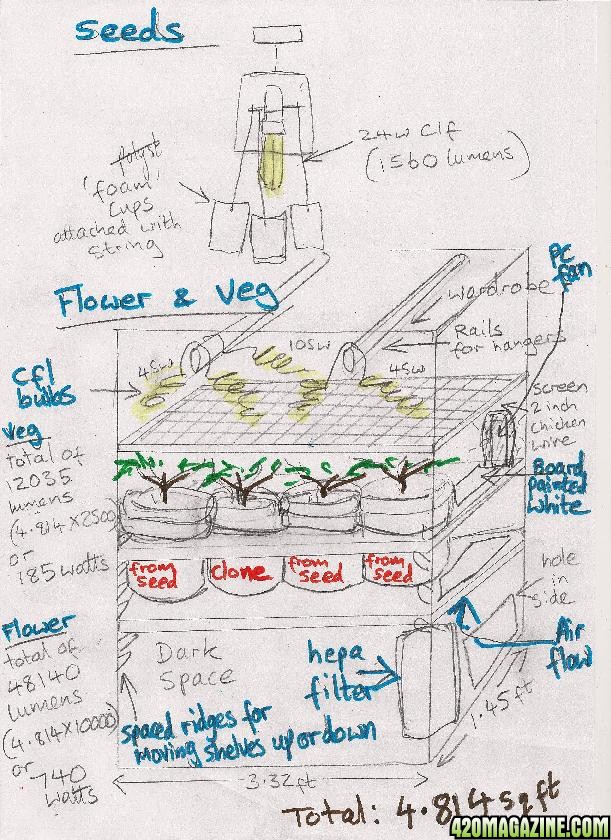 Seeds
24w Clf
(1560 lumens)
'foam'
cups
attached with
string
PC
fan
Flower & Veg
wardrobe
Rails
for hangers
45w
105w
45w
Cfl
bulbs
screen
2 inch
chicken
wire
Veg
total of
12035
lumens
(4.814x2500)
or
185 watts
Board
painted
white
from
seed
clone
from
seed
from
seed
hole
in
side
Flower
total of
48140
lumens
(4.814x10000)
or
740
watts
Dark
Space
hepa
filter
Air
flow
spaced ridges for
moving shelves up or down
1.45ft
3.32ft
Total: 4.814 sq ft
420MAGAZINE.COM